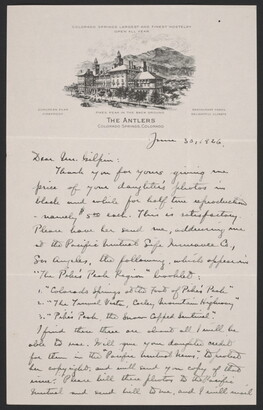 COLORADO SPRINGS LARGEST AND FINEST HOSTELRY
OPEN ALL YEAR
PIKES PEAK IN THE BACK GROUND
THE ANTLERS
COLORADO SPRINGS, COLORADO
June 30, 1926.
Dear Mr. Gilpin:
Thank you for yours, giving me
price of your daughter's photos in
black and white for half tone reproduction
- namely $5 each. This is satisfactory.
Please have her send me, addressing me
at the Pacific Mutual Life Insurance Co,
Los Angeles, the following, which appear in
"The Pike's Peak Region" booklet:
1. "Colorado Springs at the Foot of Pike's Peak"
2. "The Tunnel Vista, Corley Mountain Highway"
3. "Pike's Peak, the Snow Capped Sentinel"
I find these three are about all I will be
able to use. Will give your daughter credit
for them in the "Pacific Mutual News" to protect
her copyright, and will send you copy of that
issue. Please bill these photos to the Pacific
Mutual and send bill to me, and I will mail